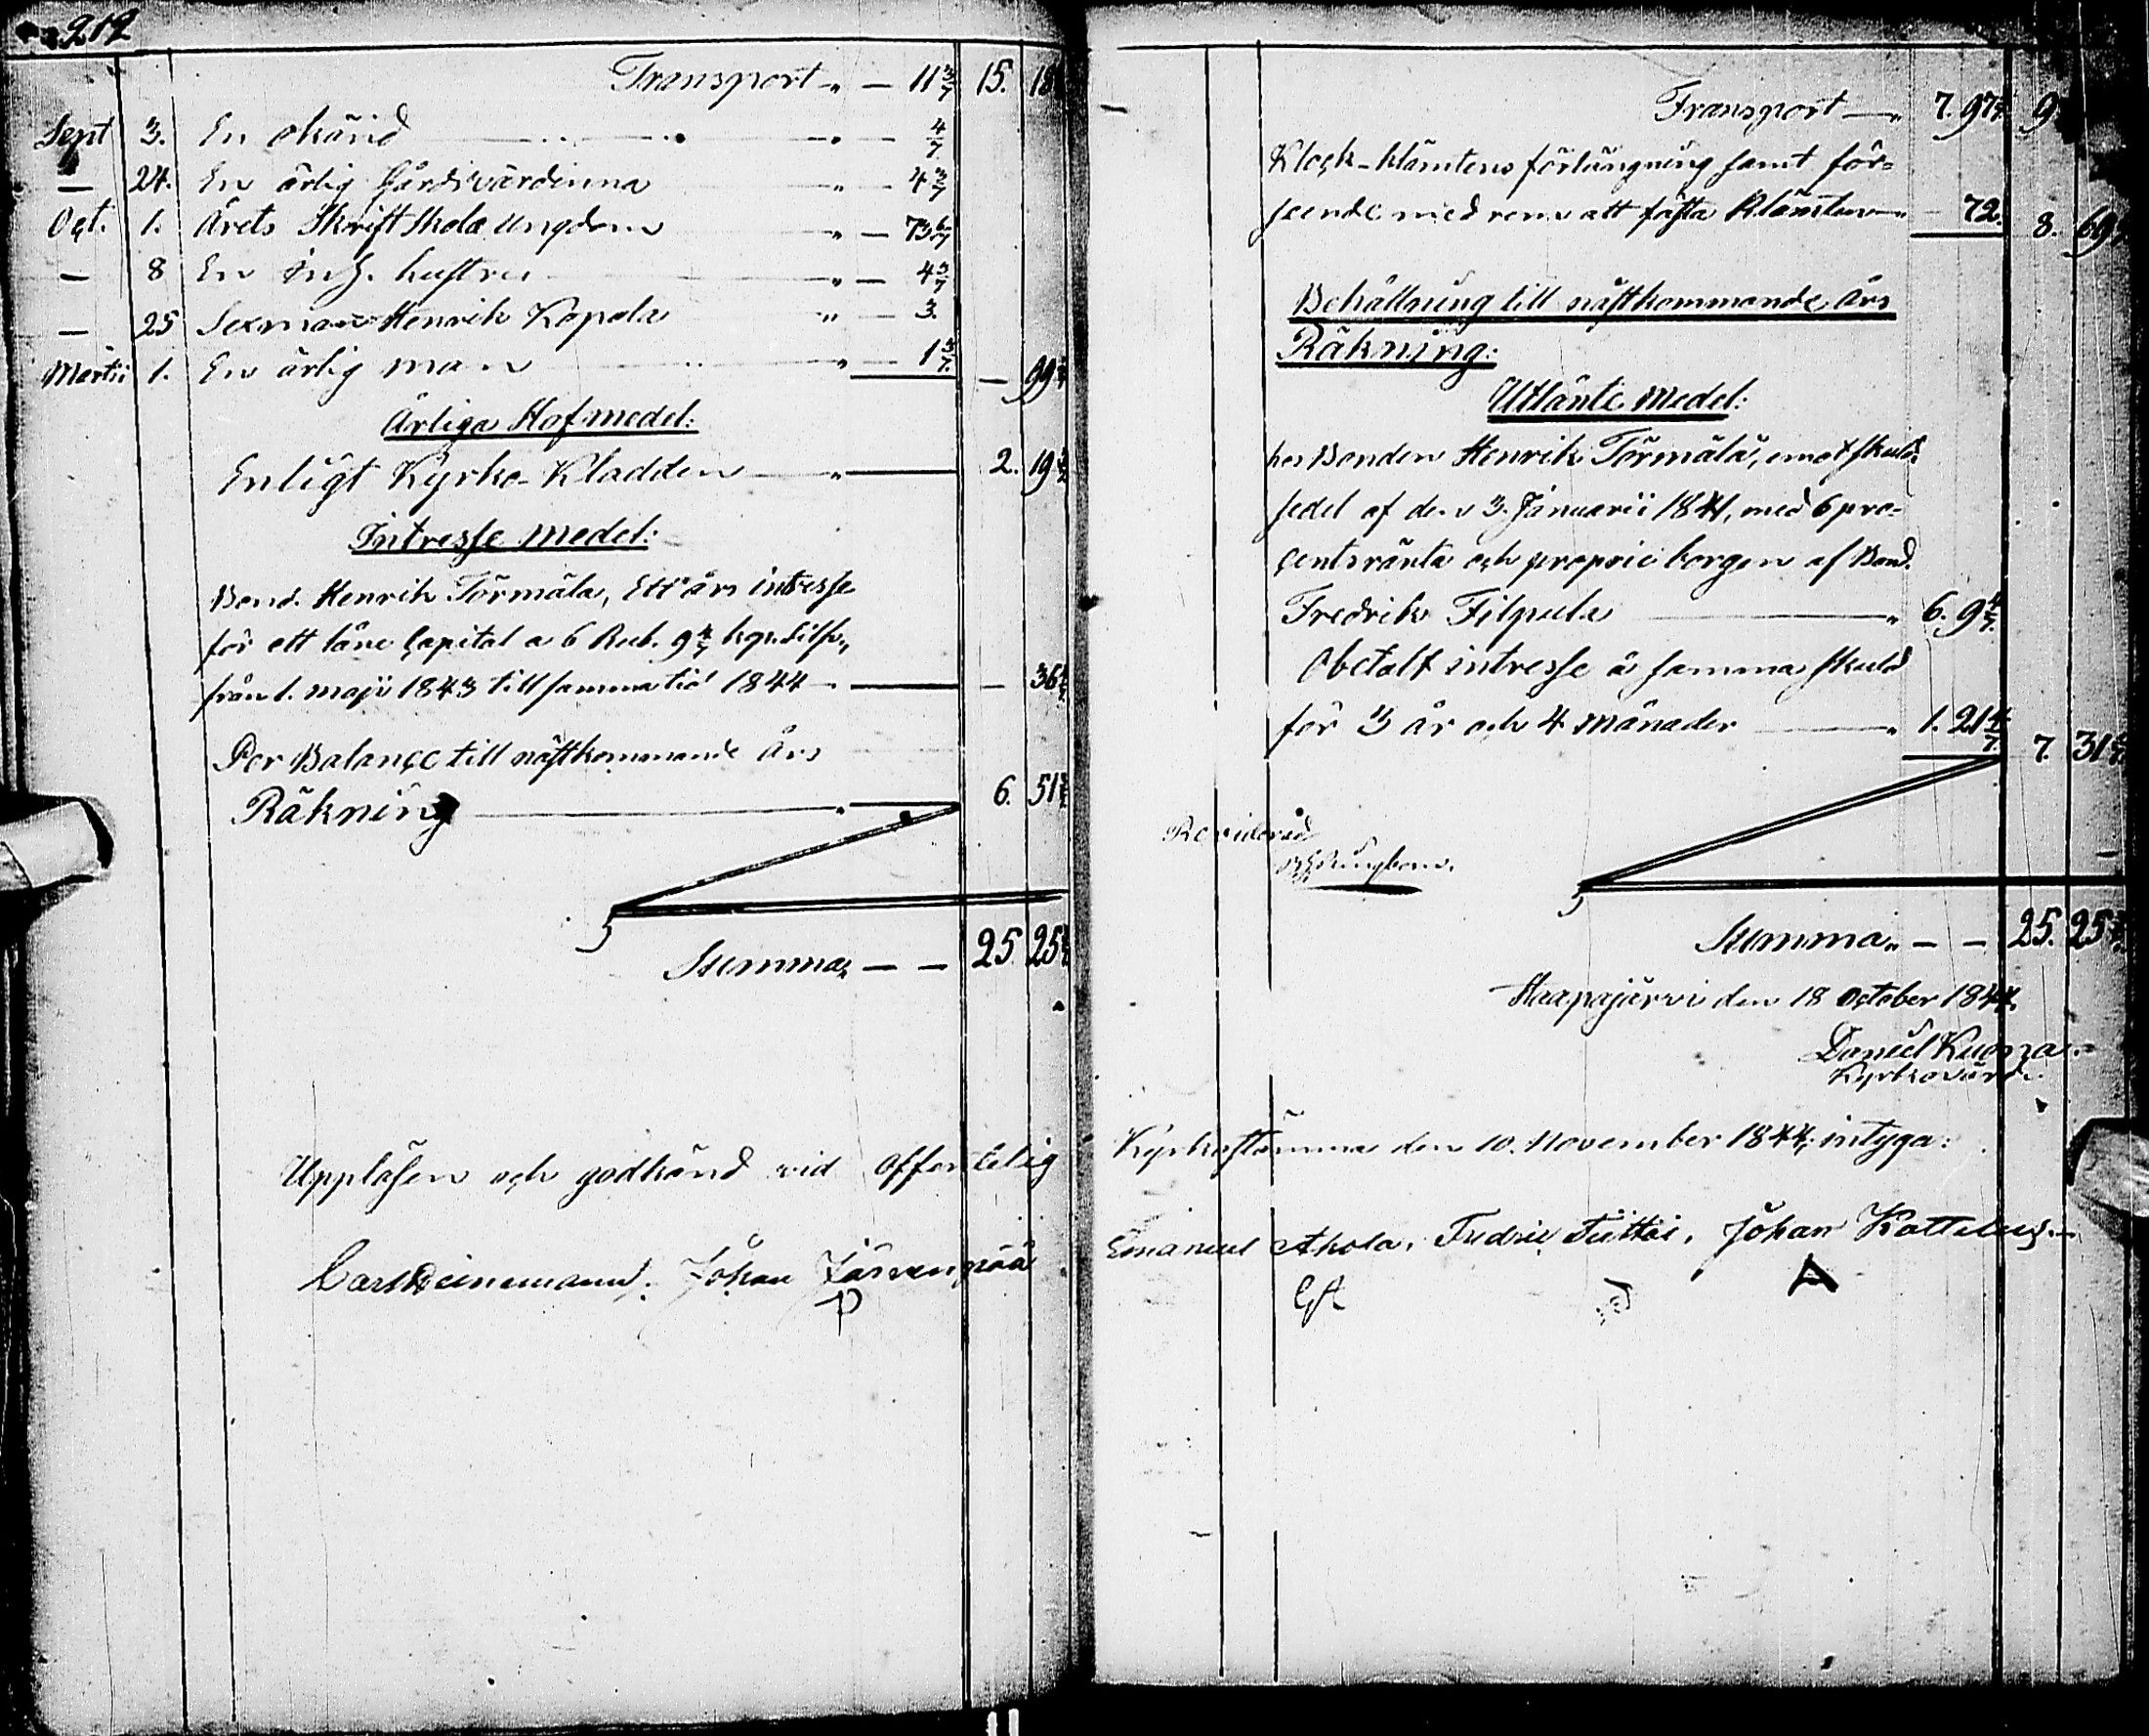 212
Transport „ — 11 3/7 15. 18
Sept 3. En okänd „ — 4/7
— 24. En ärlig Gårdsvärdinna „ — 4 3/7
Oct. 1. Årets Skriftskola Ungdom „ — 73 6/7
— 8 En hustru „ — 4 3/7
— 25 Sexman Henrik Kopola „ — 3.
Martii 1. En ärlig man „ — 1 3/7. — 99
Årliga Hofmedel:
Enligt Kyrko-Kladden „ 2. 19
Intresse medel:
Bond. Henrik Törmälä, Ett års intresse
för ett låne Capital a 6 Rub. 9 4/7 kop. Silfv.,
från 1. maji 1843 till samma tid 1844 — — 36
Per Balance till nästkommande Års
Räkning „ 6. 51
Summa „ — — 25. 25
Uppläsen och godkänd vid offentelig
Carl Heinemann. Johan Järvenpää
P
Transport — „ 7. 97 9
Klock-klämtens förlängning samt för-
seende med rem att fästa Klämten „ — 72. 8. 69
Behållning till nästkommande Års
Räkning:
Utlänte Medel:
hos Bonden Henrik Törmälä, emot skuld-
sedel af den 3. Januarii 1841, med 6 pro-
centsränta och proprie borgen af Bond.
Fredrik Filpula „ 6. 9 4/7.
Obetalt intresse å samma skuld
för 3 år och 4 månader „ 1. 21 4/7 7. 31
Reviderad
Summa „ — — 25. 25
Haapajärvi den 18 October 1844.
Daniel Kuona
Kyrkovärd.
Kyrkostämma den 10. November 1844; intyga:
Emanuel Ahola, Fredric Tiittoi, Johan Kattelus
EA A